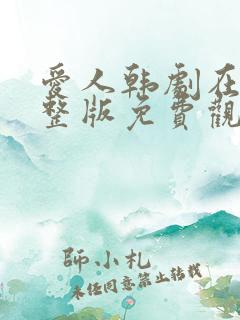 愛人韩劇在
整版免費觀
師小札
未经同意禁止转载